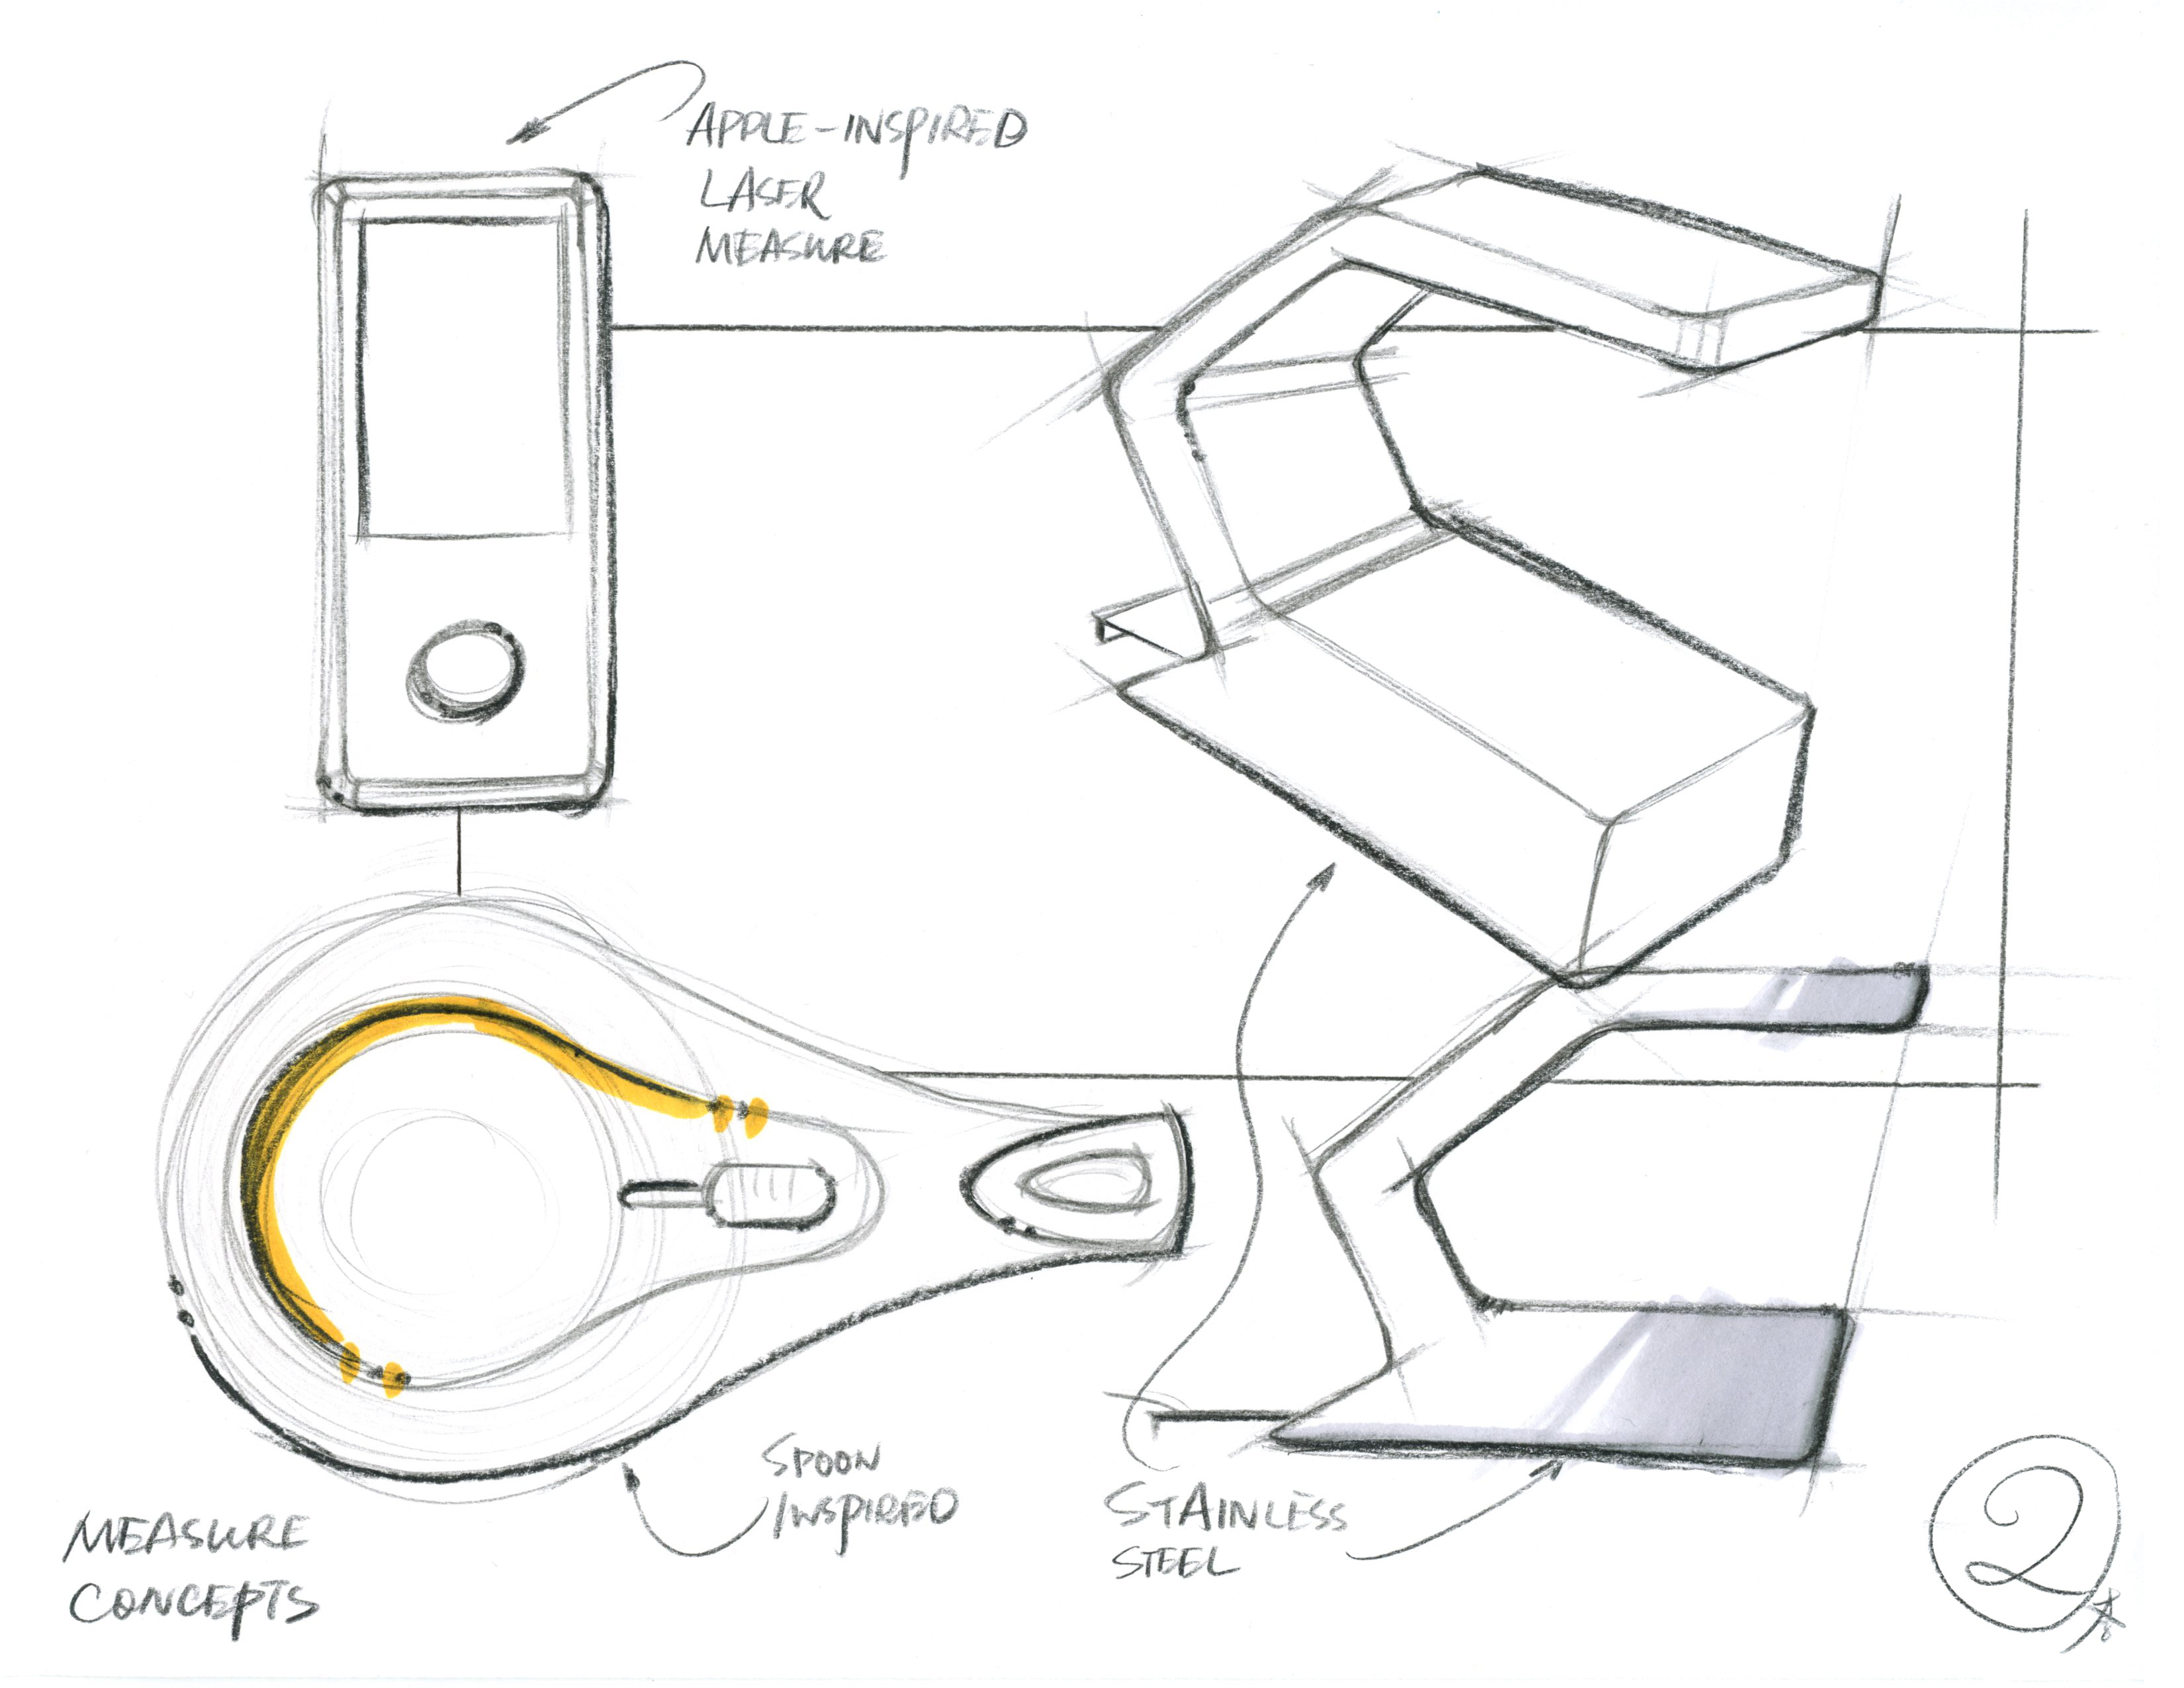 APPLE-INSPIRED
LASER
MEASURE
SPOON
INSPIRED
STAINLESS
STEEL
MEASURE
CONCEPTS
2